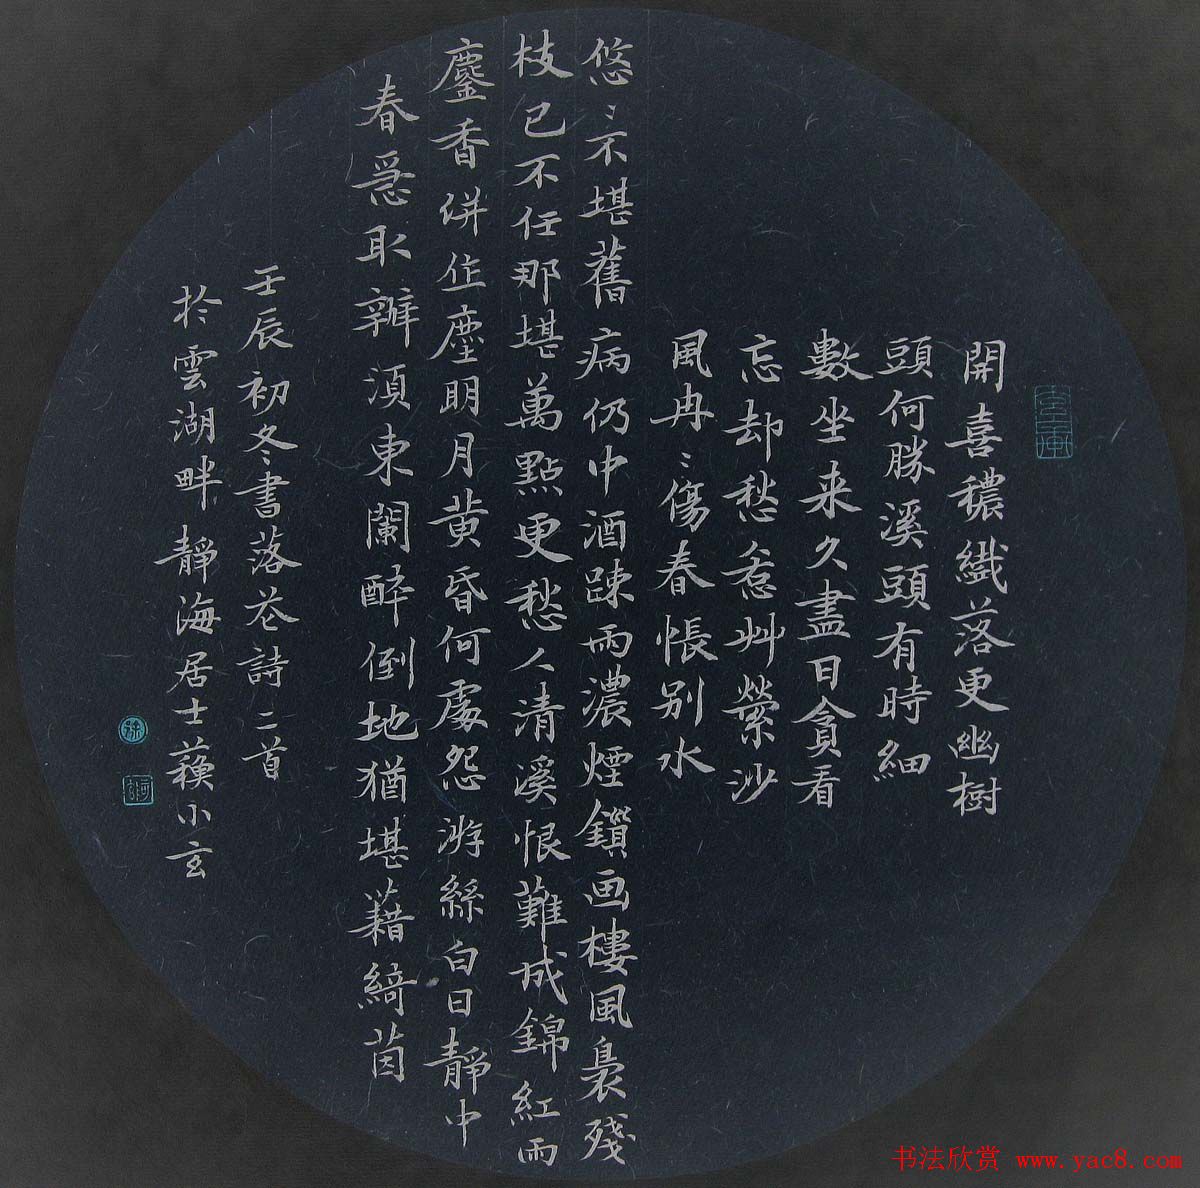 開喜穠纖落更幽樹
頭何勝溪頭有時細
數坐来久盡日貪看
忘却愁惹艸縈沙
風冉〻傷春悵别水
悠〻不堪舊病仍中酒踈雨濃煙鎖画樓風裊殘
枝已不任那堪萬點更愁人清溪恨難成錦紅雨
鏖香併作塵明月黄昏何處怨游絲白日靜中
春爲取辦須東闌醉倒地猶堪藉綺茵
壬辰初冬書落花詩二首
於雲湖畔靜海居士蘓小玄
书法欣赏 www.yac8.com